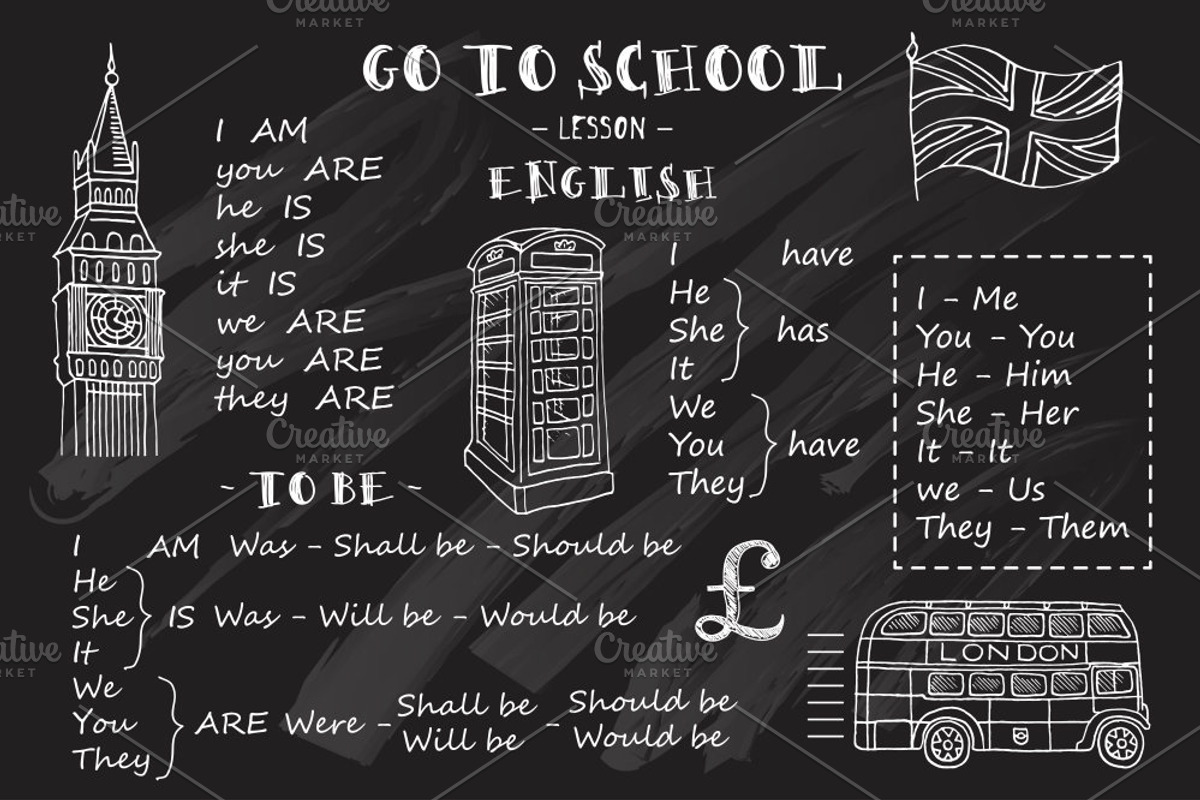 GO TO SCHOOL
- LESSON -
ENGLISH
I AM
you ARE
he IS
she IS
it IS
we ARE
you ARE
they ARE
I have
He
She
It
has
We
You
They
have
I - Me
You - You
He - Him
She - Her
It - It
we - Us
They - Them
- TO BE -
I AM Was - Shall be - Should be
He
She
It
IS Was - Will be - Would be
We
You
They
ARE Were - Shall be - Should be
Will be Would be
£
LONDON
Creative
MARKET
Creative
MARKET
Creative
MARKET
Creative
MARKET
Creative
MARKET
Creative
MARKET
Creative
MARKET
Creative
MARKET
Creative
MARKET